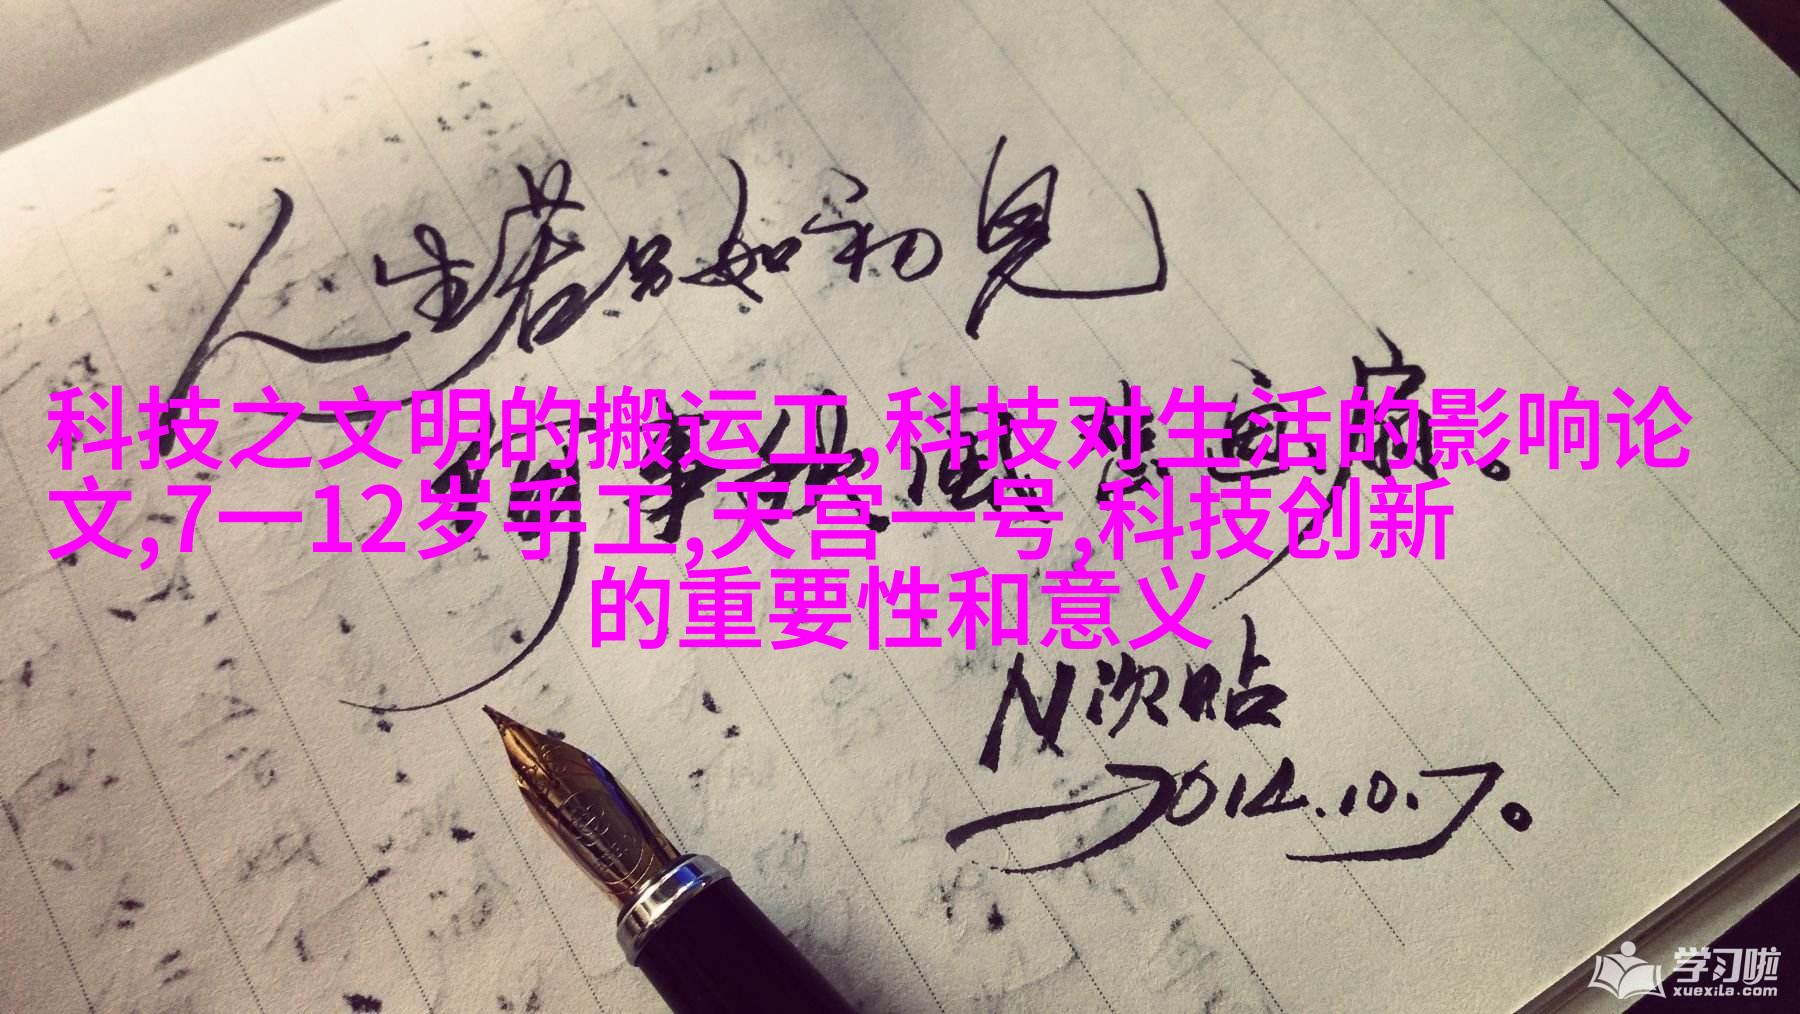 人生若只如初见
何事秋風悲画扇。
科技之文明的搬运工,科技对生活的影响论
文,7一12岁手工,天宫一号,科技创新
的重要性和意义
N次贴
2014.10.7。
学习啦
xuexila.com